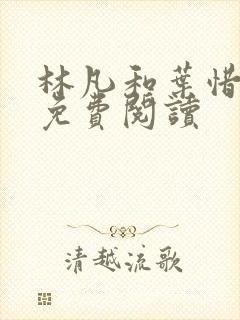 林凡和葉惜
免費閱讀
清越流歌